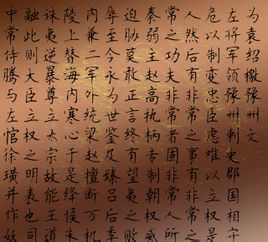 为袁绍檄豫州文
左将军领豫州刺史郡国相守
危以制变忠臣虑难以立权是
人然后有非常之事有非常之
常之功夫非常者固非常人所
秦弱主赵高执柄专制朝权威
迫胁莫敢正言终有望夷之败
辱至今永为世鉴及臻吕后季
内兼二军外统梁赵擅断万机
陵上替海内寒心于是绛侯朱
诛夷逆暴尊立太宗故能王道
融此则大臣立权之明表也司
中常侍腾与左悺徐璜并作妖